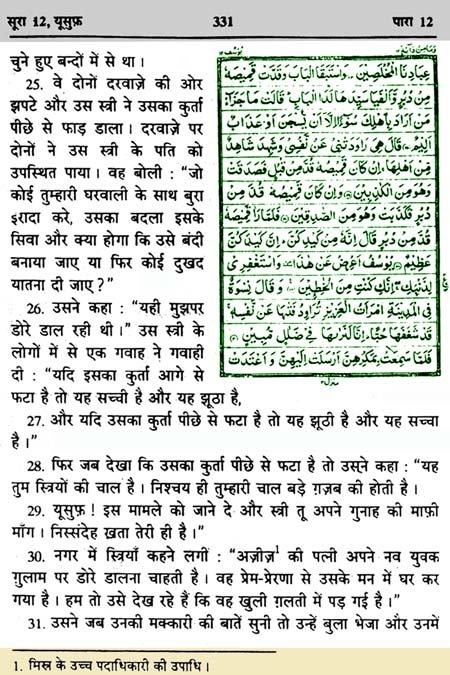 सूरा 12, यूसुफ़ 331 पारा 12
चुने हुए बन्दों में से था।
25. वे दोनों दरवाज़े की ओर
झपटे और उस स्त्री ने उसका कुर्ता
पीछे से फाड़ डाला। दरवाज़े पर
दोनों ने उस स्त्री के पति को
उपस्थित पाया। वह बोली : “जो
कोई तुम्हारी घरवाली के साथ बुरा
इरादा करे, उसका बदला इसके
सिवा और क्या होगा कि उसे बंदी
बनाया जाए या फिर कोई दुखद
यातना दी जाए ?”
26. उसने कहा : “यही मुझपर
डोरे डाल रही थी।” उस स्त्री के
लोगों में से एक गवाह ने गवाही
दी : “यदि इसका कुर्ता आगे से
फटा है तो यह सच्ची है और यह झूठा है,
عِبَادِنَا الْمُخْلَصِينَ وَاسْتَبَقَا الْبَابَ وَقَدَّتْ قَمِيصَهُ
مِنْ دُبُرٍ وَّأَلْفَيَا سَيِّدَهَا لَدَا الْبَابِ قَالَتْ مَا جَزَاءُ
مَنْ أَرَادَ بِأَهْلِكَ سُوءًا إِلَّا أَنْ يُسْجَنَ أَوْ عَذَابٌ
أَلِيمٌ قَالَ هِيَ رَاوَدَتْنِي عَنْ نَفْسِي وَشَهِدَ شَاهِدٌ
مِنْ أَهْلِهَا إِنْ كَانَ قَمِيصُهُ قُدَّ مِنْ قُبُلٍ فَصَدَقَتْ
وَهُوَ مِنَ الْكَاذِبِينَ وَإِنْ كَانَ قَمِيصُهُ قُدَّ مِنْ
دُبُرٍ فَكَذَبَتْ وَهُوَ مِنَ الصَّادِقِينَ فَلَمَّا رَأَى قَمِيصَهُ
قُدَّ مِنْ دُبُرٍ قَالَ إِنَّهُ مِنْ كَيْدِكُنَّ إِنَّ كَيْدَكُنَّ
عَظِيمٌ يُوسُفُ أَعْرِضْ عَنْ هَذَا وَاسْتَغْفِرِي
لِذَنْبِكِ إِنَّكِ كُنْتِ مِنَ الْخَاطِئِينَ وَقَالَ نِسْوَةٌ
فِي الْمَدِينَةِ امْرَأَتُ الْعَزِيزِ تُرَاوِدُ فَتَاهَا عَنْ نَفْسِهِ
قَدْ شَغَفَهَا حُبًّا إِنَّا لَنَرَاهَا فِي ضَلَالٍ مُبِينٍ
فَلَمَّا سَمِعَتْ بِمَكْرِهِنَّ أَرْسَلَتْ إِلَيْهِنَّ وَأَعْتَدَتْ
27. और यदि उसका कुर्ता पीछे से फटा है तो यह झूठी है और यह सच्चा
है।”
28. फिर जब देखा कि उसका कुर्ता पीछे से फटा है तो उसने कहा : “यह
तुम स्त्रियों की चाल है। निश्चय ही तुम्हारी चाल बड़े ग़ज़ब की होती है।
29. यूसुफ़ ! इस मामले को जाने दे और स्त्री तू अपने गुनाह की माफ़ी
माँग। निस्संदेह ख़ता तेरी ही है।”
30. नगर में स्त्रियाँ कहने लगीं : “अज़ीज़¹ की पत्नी अपने नव युवक
ग़ुलाम पर डोरे डालना चाहती है। वह प्रेम-प्रेरणा से उसके मन में घर कर
गया है। हम तो उसे देख रहे हैं कि वह खुली ग़लती में पड़ गई है।
31. उसने जब उनकी मक्कारी की बातें सुनी तो उन्हें बुला भेजा और उनमें
1. मिस्र के उच्च पदाधिकारी की उपाधि।